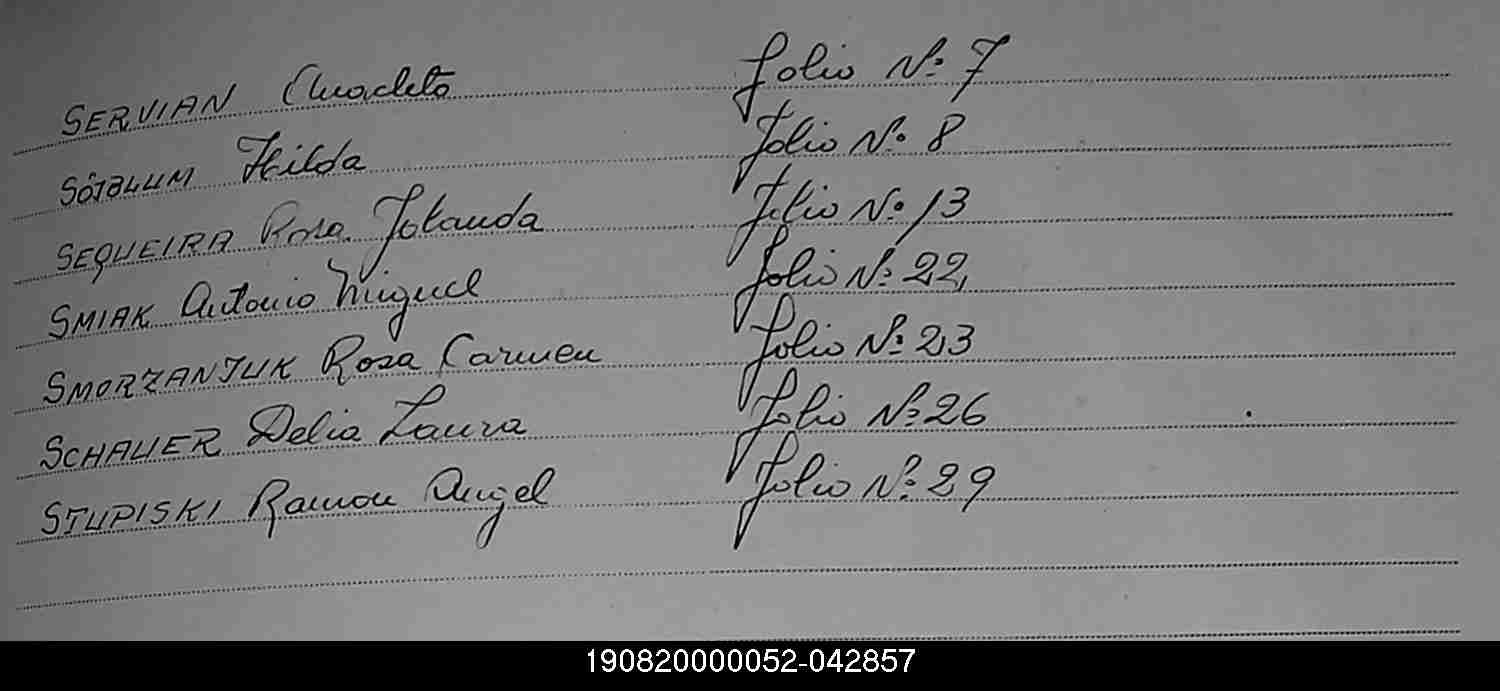 SERVIAN Anacleto Folio Nº 7
SÖTBLUM Hilda Folio Nº 8
SEQUEIRA Rosa Yolanda Folio Nº 13
SMIAK Antonio Miguel Folio Nº 22
SMORZANJUK Rosa Carmen Folio Nº 23
SCHAUER Delia Laura Folio Nº 26
STUPISKI Ramon Angel Folio Nº 29
190820000052-042857